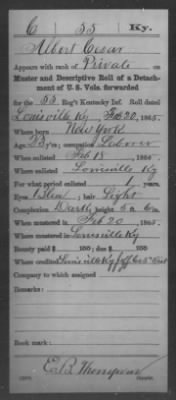 C 55 Ky.
Albert Cesar
Appears with rank of Private on
Muster and Descriptive Roll of a Detach-
ment of U. S. Vols. forwarded
for the 55 Reg't Kentucky Inf. Roll dated
Louisville Ky Feb 20, 1865.
Where born New York
Age y'rs; occupation Laborer
When enlisted Feb 18, 186
Where enlisted Louisville Ky
For what period enlisted 1 years.
Eyes Blue; hair Light
Complexion Dark; height 5 ft. in.
When mustered in Feb 20, 1865.
Where mustered in Louisville Ky
Bounty paid $ 100; due $ 100
Where credited Louisville Ky
Company to which assigned
Remarks:
Book mark:
E. B. Thompson
Copyist.